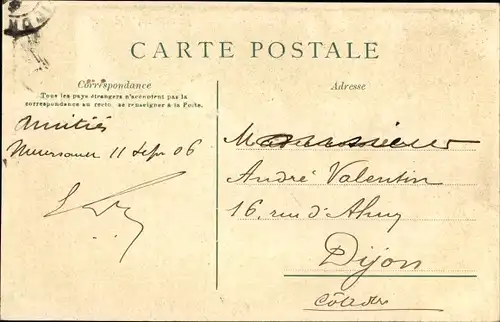 CARTE POSTALE
Correspondance
Tous les pays étrangers n'acceptent pas la
correspondance au recto, se renseigner à la Poste.
Amitiés
11 Sept 06
Adresse
Monsieur
André Valentin
16, rue d'Ahuy
Dijon